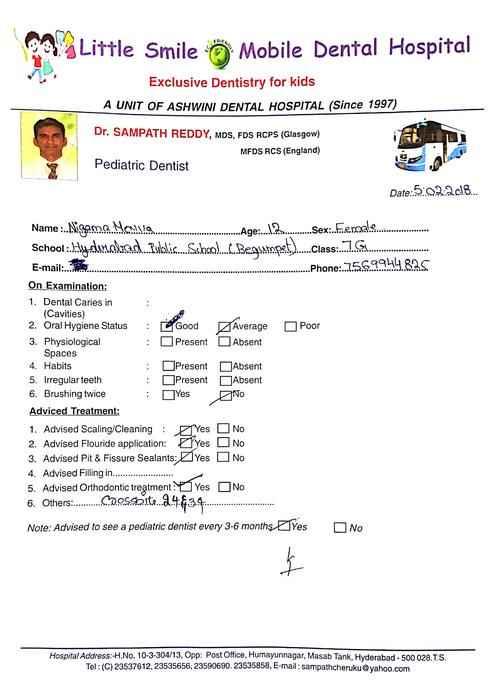 Little Smile ECO FRIENDLY Mobile Dental Hospital
Exclusive Dentistry for kids
A UNIT OF ASHWINI DENTAL HOSPITAL (Since 1997)
Dr. SAMPATH REDDY, MDS, FDS RCPS (Glasgow)
MFDS RCS (England)
Pediatric Dentist
Date: 5.02.2018
Name: Nigama Age: 12 Sex: Female
School: Hyderabad Public School (Begumpet) Class: 7G
E-mail: Phone:
On Examination:
1. Dental Caries in :
(Cavities)
2. Oral Hygiene Status : Good Average Poor
3. Physiological : Present Absent
Spaces
4. Habits : Present Absent
5. Irregular teeth : Present Absent
6. Brushing twice : Yes No
Adviced Treatment:
1. Advised Scaling/Cleaning : Yes No
2. Advised Flouride application: Yes No
3. Advised Pit & Fissure Sealants: Yes No
4. Advised Filling in
5. Advised Orthodontic treatment: Yes No
6. Others: 24 & 34
Note: Advised to see a pediatric dentist every 3-6 months Yes No
Hospital Address:-H.No. 10-3-304/13, Opp: Post Office, Humayunnagar, Masab Tank, Hyderabad - 500 028.T.S.
Tel : (C) 23537612, 23535656, 23590690. 23535858, E-mail : sampathcheruku@yahoo.com